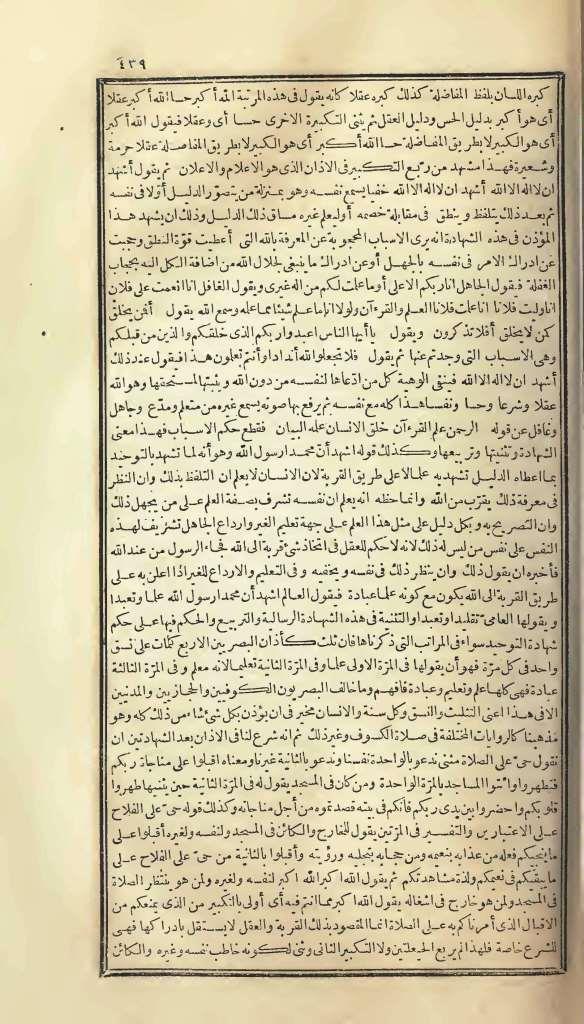 ٤٣٩
كبره اللسان بلفظ المفاضلة كذلك كبره عقلا كانه يقول فى هذه المرتبة الله أكبر حسا الله أكبر عقلا
أى هو أكبر بدليل الحس ودليل العقل ثم يثنى التكبيرة الاخرى حسا أى وعقلا فيقول الله أكبر
أى هو الكبير لا بطريق المفاضلة حسا الله أكبر أى هو الكبير لا بطريق المفاضلة عقلا حرمة
وشعيرة فهذا مشهد من ربع التكبير فى الاذان الذى هو الاعلام والاعلان ثم يقول أشهد
ان لا اله الا الله أشهد ان لا اله الا الله خفيا يسمع نفسه وهو بمنزلة من تصوّر الدليل أوّلا فى نفسه
ثم بعد ذلك يتلفظ وينطق فى مقابلة خصمه أو ليعلم غيره مساق ذلك الدليل وذلك ان يشهد هذا
المؤذن فى هذه الشهادة انه يرى الاسباب المحجوبة عن المعرفة بالله التى أعطيت قوّة النطق وحجبت
عن ادراك الامر فى نفسه بالجهل أو عن ادراك ما ينبغى لجلال الله من اضافة الكل اليه بحجاب
الغفلة فيقول الجاهل انا ربكم الاعلى أو ما علمت لكم من اله غيرى ويقول الغافل انا انعمت على فلان
انا وليت فلانا انا علمت فلانا العلم والقرءآن ولولا انا ما علم شيئا مما علمه وسمع الله يقول أفمن يخلق
كمن لا يخلق أفلا تذكرون ويقول يا أيها الناس اعبدوا ربكم الذى خلقكم والذين من قبلكم
وهى الاسباب التى وجدتم عنها ثم يقول فلا تجعلوا لله أندادا وأنتم تعلمون هذا فيقول عند ذلك
أشهد ان لا اله الا الله فينفى الوهية كل من ادّعاها لنفسه من دون الله ويثبتها لمستحقها وهو الله
عقلا وشرعا وحسا ونفسا هذا كله مع نفسه ثم يرفع بها صوته يسمع غيره من متعلم ومدّع وجاهل
وغافل عن قوله الرحمن علم القرءآن خلق الانسان علمه البيان فقطع حكم الاسباب فهذا معنى
الشهادة وتثنيتها وتربيعها وكذلك قوله اشهد أنّ محمدا رسول الله وهو أنه لما تشهد بالتوحيد
بما اعطاه الدليل تشهد به علما لا على طريق القربة لان الانسان لا يعلم ان التلفظ بذلك وان النظر
فى معرفة ذلك يقرّب من الله وانما حظه انه يعلم ان نفسه تشرف بصفة العلم على من يجهل ذلك
وان التصريح به وبكل دليل على مثل هذا العلم على جهة تعليم الغير وارداع الجاهل تشريف لهذه
النفس على نفس من ليس له ذلك لانه لا حكم للعقل فى اتخاذ شئ قربة الى الله فجاء الرسول من عند الله
فأخبره ان يقول ذلك وان ينظر ذلك فى نفسه ويخفيه وفى التعليم والارداع للغير اذا اعلن به على
طريق القربة الى الله يكون مع كونه علما عبادة فيقول العالم اشهد أن محمدا رسول الله علما وتعبدا
ويقولها العامىّ تقليدا وتعبدا والتثنية فى هذه الشهادة الرسالية والتربيع والحكم فيها على حكم
شهادة التوحيد سواء فى المراتب التى ذكرناها فان ثلث كأذان البصريين الاربع كلمات على نسق
واحد فى كل مرّة فهو أن يقولها فى المرّة الاولى علما وفى المرّة الثانية تعليما لانه معلم وفى المرّة الثالثة
عبادة فهى كلها علم وتعليم وعبادة فافهم وما خالف البصريون الكوفيين والحجازيين والمدنيين
الا فى هذا اعنى التثليث والنسق وكل سنة والانسان مخير فى ان يؤذن بكل شئ شاء من ذلك كله وهو
مذهبنا كالروايات المختلفة فى صلاة الكسوف وغير ذلك ثم انه شرع لنا فى الاذان بعد الشهادتين ان
نقول حىّ على الصلاة مثنى ندعو بالواحدة نفسنا وندعو بالثانية غيرنا ومعناه اقبلوا على مناجاة ربكم
فتطهروا وائتوا المساجد بالمرّة الواحدة ومن كان فى المسجد يقول له فى المرّة الثانية حين يثنيها طهروا
قلوبكم واحضروا بين يدى ربكم فانكم فى بيته قصدتموه من أجل مناجاته وكذلك قوله حىّ على الفلاح
على الاعتبارين والتفسير فى المرّتين يقول للخارج والكائن فى المسجد ولنفسه ولغيره أقبلوا على
ما ينجيكم فعله من عذابه بنعيمه ومن حجابه بتجليه ورؤيته وأقبلوا بالثانية من حىّ على الفلاح على
ما يبقيكم فى نعيمكم ولذة مشاهدتكم ثم يقول الله اكبر الله اكبر لنفسه ولغيره ولمن هو ينتظر الصلاة
فى المسجد ولمن هو خارج فى اشغاله يقول الله اكبر مما انتم فيه أى أولى بالتكبير من الذى يمنعكم من
الاقبال الذى أمرناكم به على الصلاة انما المقصود بذلك القربة والعقل لا يستقل بادراكها فهى
للشرع خاصة فلهذا لم يربع الحيعلتين ولا التكبير الثانى وثنى لكونه خاطب نفسه وغيره والكائن